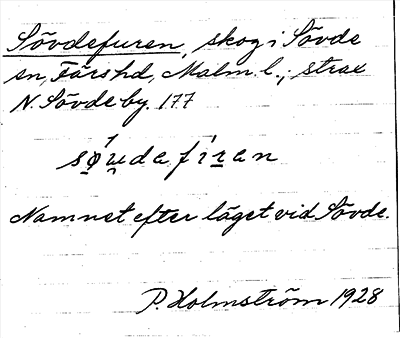 Sövdefuren, skog i Sövde
sn, Färs hd, Malm. l.; strax
N. Sövde by. 177
sǿ̱u̯defíṟen
Namnet efter läget vid Sövde.
P. Holmström 1928